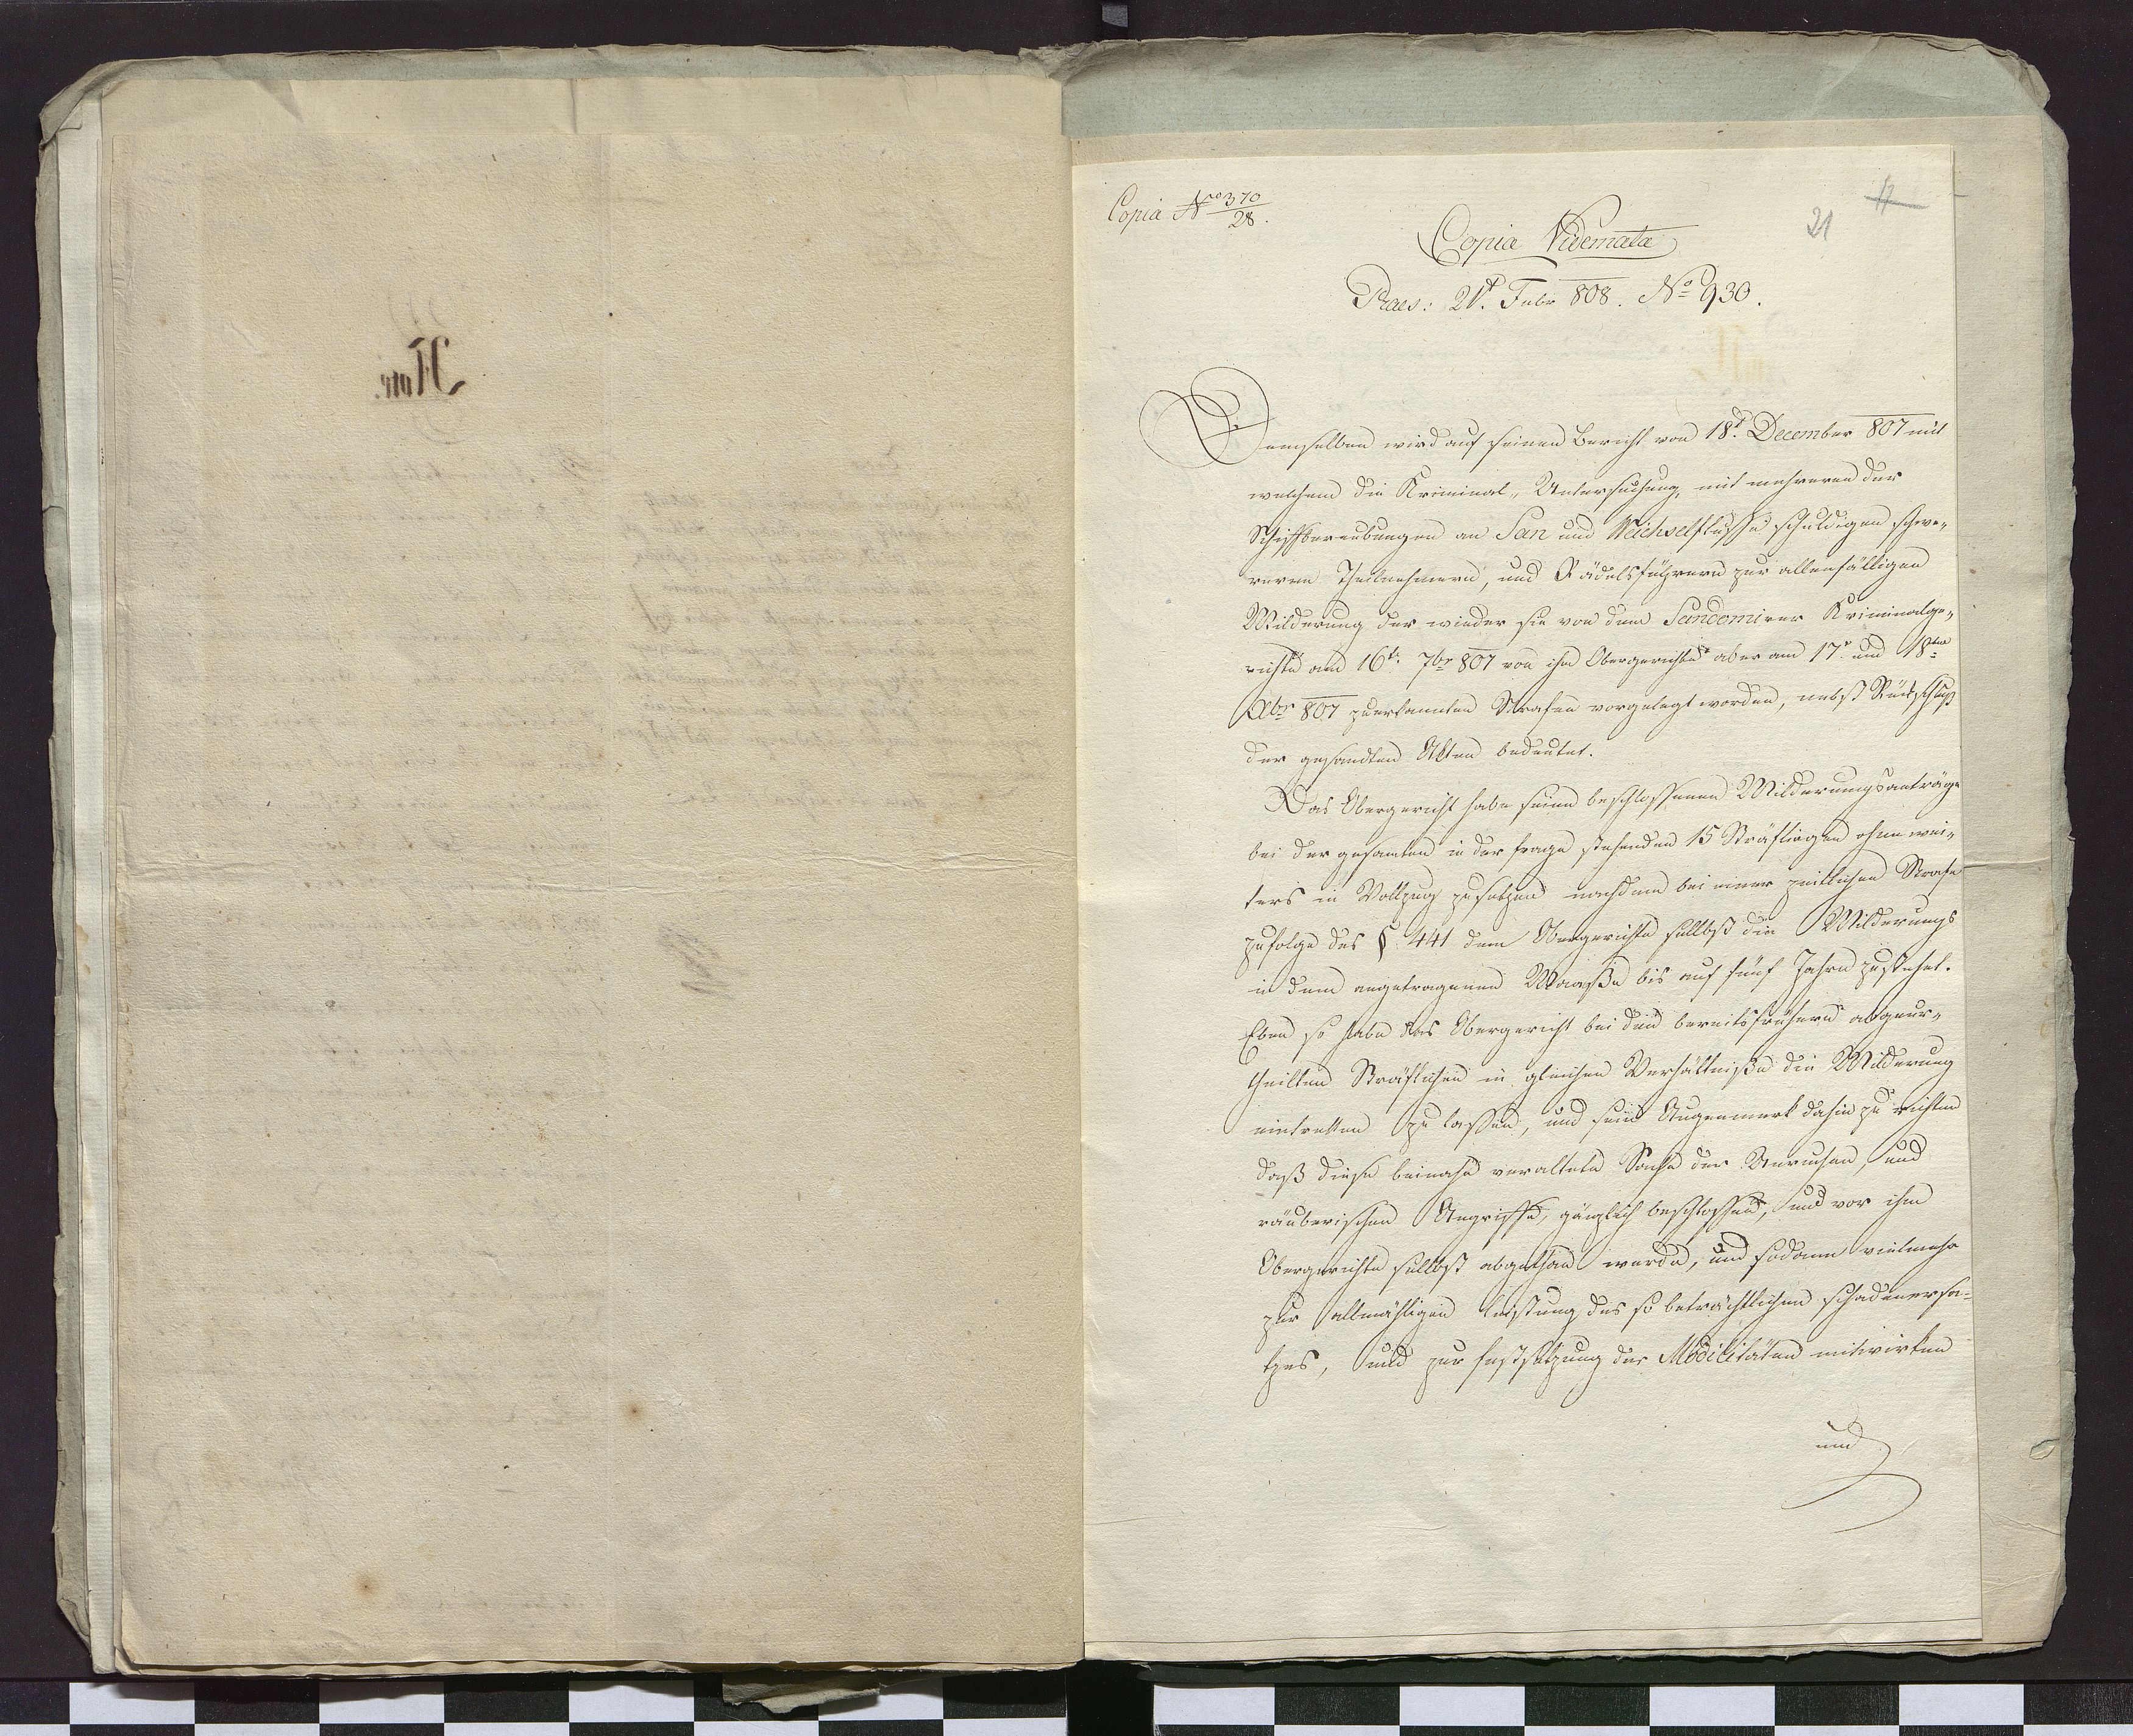 Copia No 370/28.
17
21
Copia Videmata
Praes: 21t. Febr 808. No 930.
Demselben wird auf seinen Bericht von 18t. December 807 mit
welchem die Kriminal„ Untersuchung, mit mehreren der
Schiffberaubungen an San und Weichselfluße schuldigen schwe„
reren Theilnehmern, und Rädelsführern zur allenfälligen
Milderung der wieder sie von dem Sandomirer Kriminalge„
richte am 16t. 7br 807 von ihm Obergerichte aber am 17t. und 18ten
Xbr 807 zuerkannten Strafen vorgelegt worden, nebst Rückschluß
der gesandten Akten bedeutet.
Das Obergericht habe seine beschlossenen Milderungsanträge
bei der gesamten in der frage stehenden 15 Sträflingen ohne wei„
ters in Vollzug zusetzen nachdem bei einer zeitlichen Strafe
zufolge des §. 441 dem Obergerichte selbst die Milderungs
in dem angetragenen Maaße bis auf fünf Jahre zustehet.
Eben so habe das Obergericht bei den bereits frühern abgeur„
theilten Sträflichen in gleichen Verhältniße die Milderung
eintretten zu lassen, und sein Augenmerk dahin zu richten
daß diese beinahe veraltete Sache der Unruhen, und
räuberischen Angriffe, gänzlich beschlossen, und vor ihm
Obergerichte selbst abgethan werde, und sodann vielmehr
zur allmähligen Leistung des so beträchtlichen schadenersa=
tzes, und zur festsetzung der Modilitäten mitwirken
und
Note.